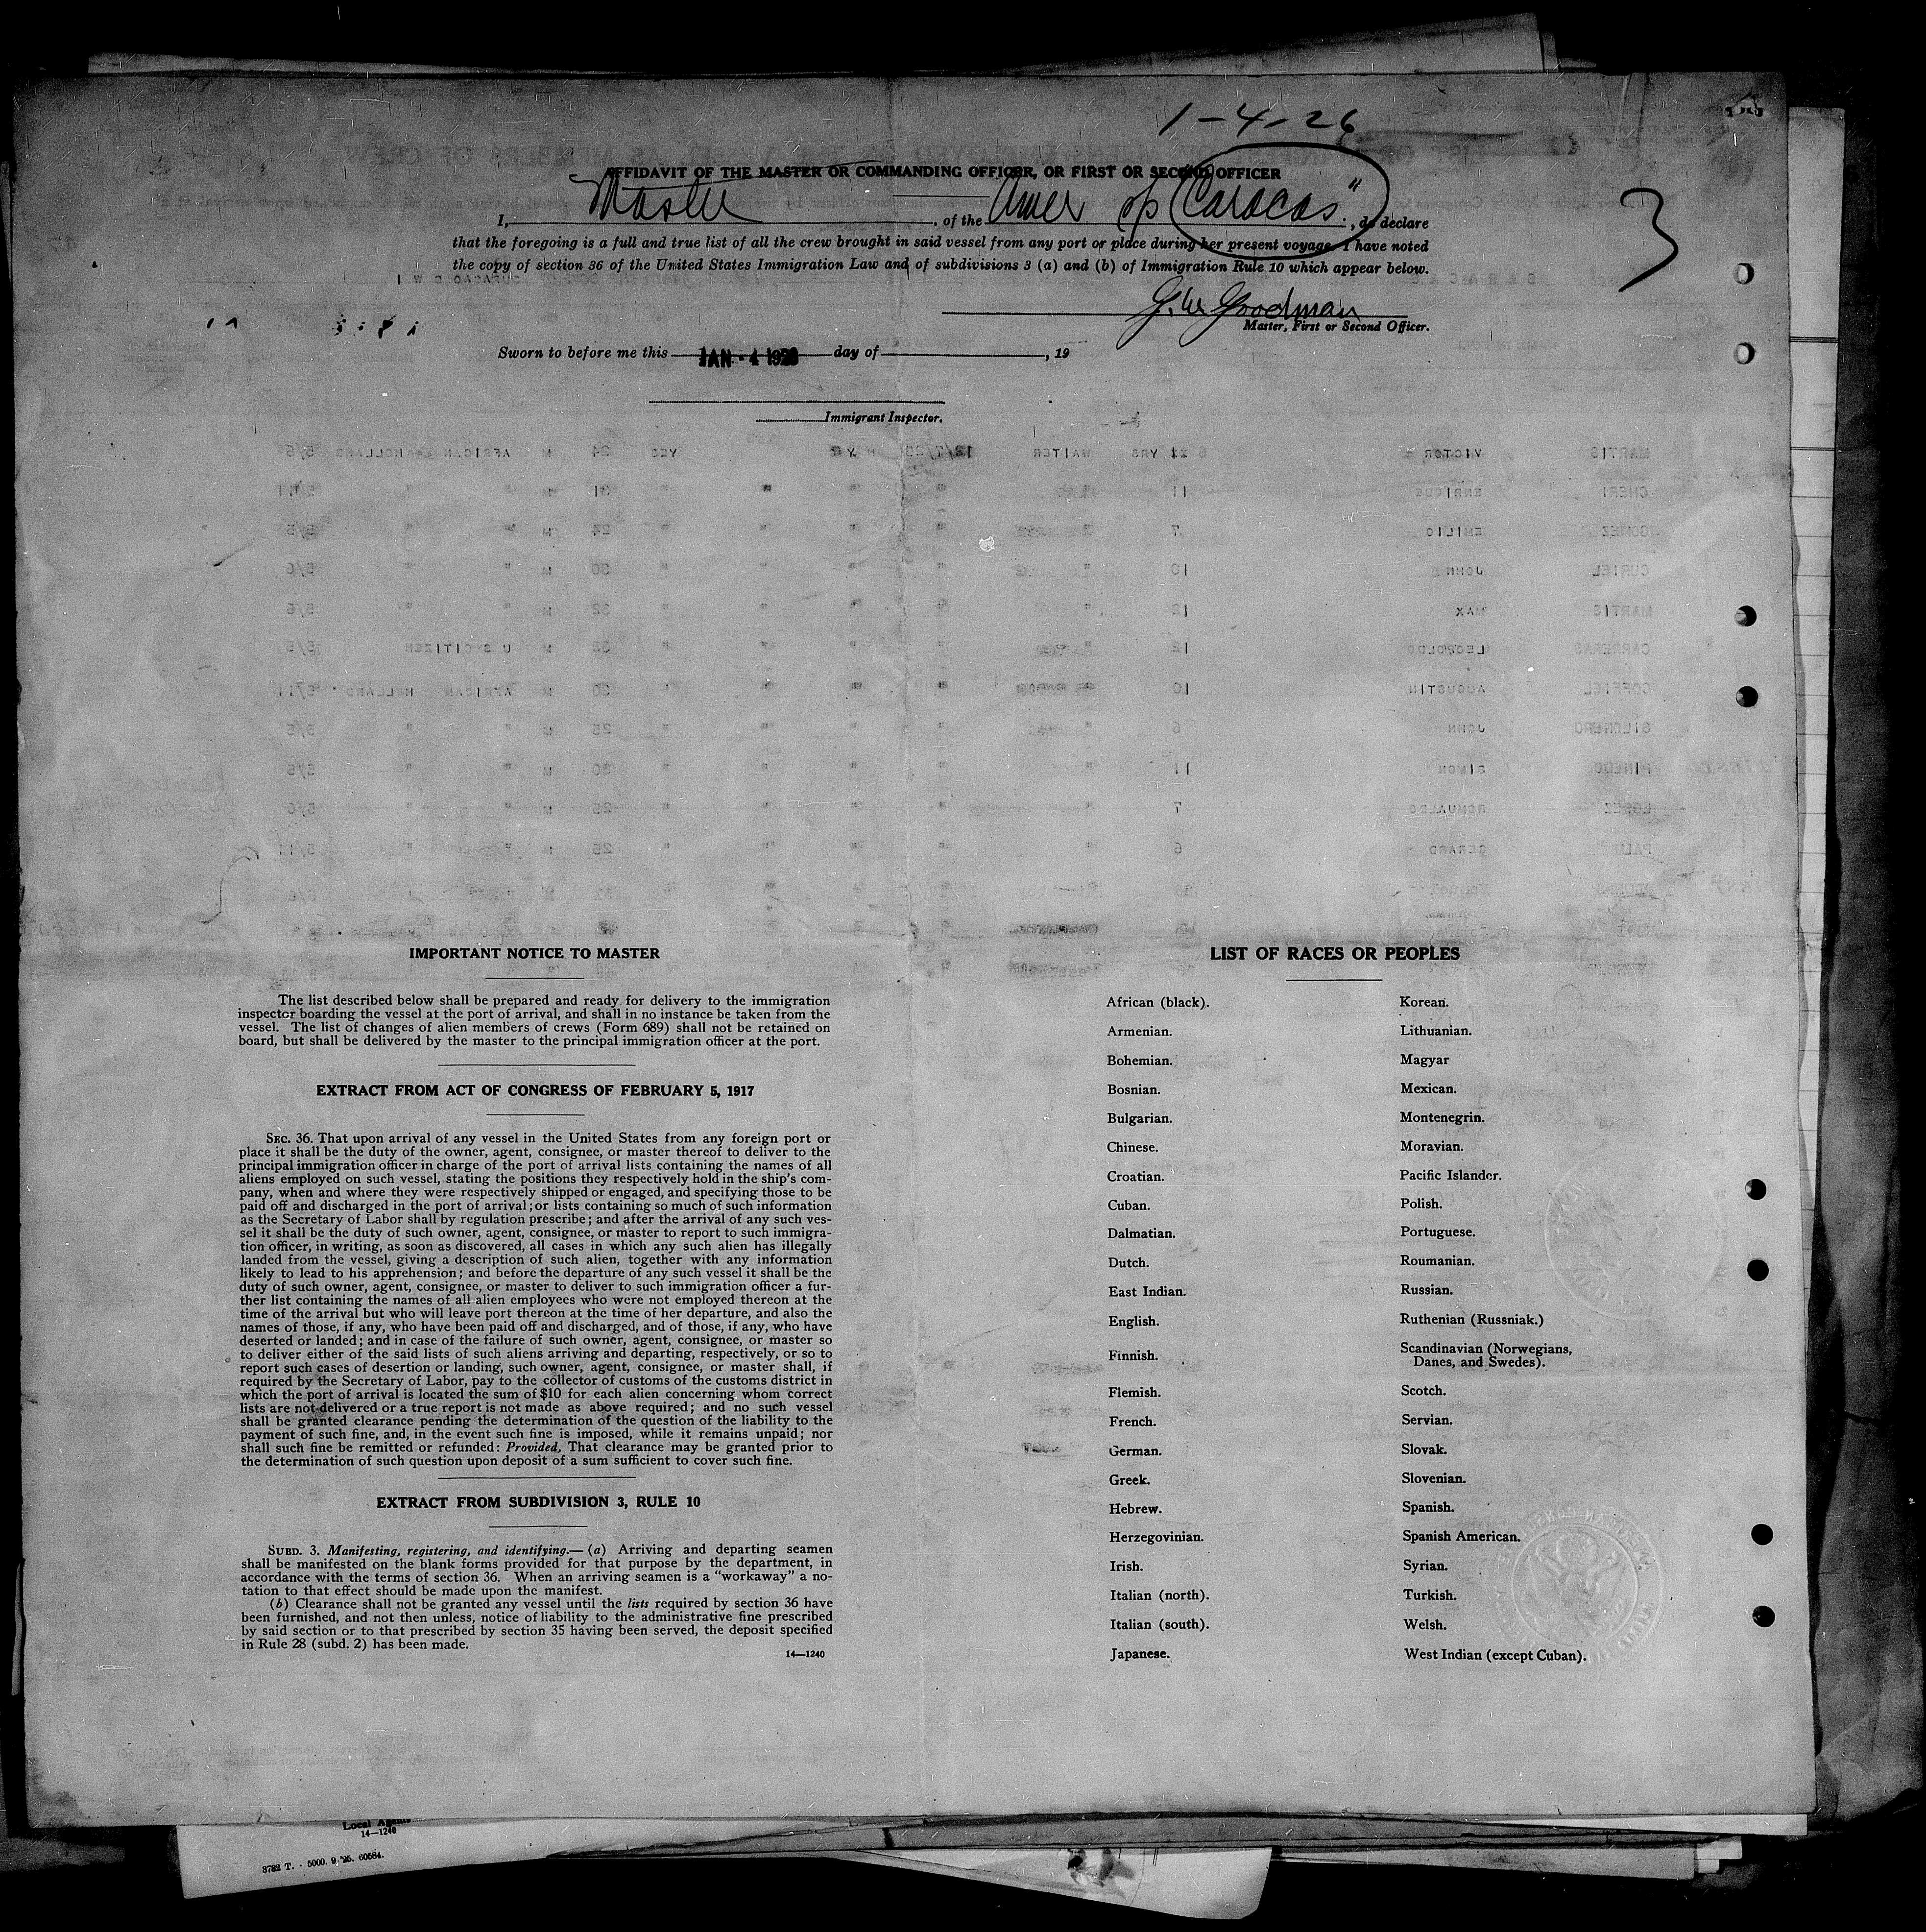 1-4-26
AFFIDAVIT OF THE MASTER OR COMMANDING OFFICER, OR FIRST OR SECOND OFFICER
I, Master, of the Amer s/s "Caracas", do declare
that the foregoing is a full and true list of all the crew brought in said vessel from any port or place during her present voyage. I have noted
the copy of section 36 of the United States Immigration Law and of subdivisions 3 (a) and (b) of Immigration Rule 10 which appear below.
3
G. W. Goodman
Master, First or Second Officer.
Sworn to before me this JAN - 4 1926 day of , 19
Immigrant Inspector.
IMPORTANT NOTICE TO MASTER
The list described below shall be prepared and ready for delivery to the immigration
inspector boarding the vessel at the port of arrival, and shall in no instance be taken from the
vessel. The list of changes of alien members of crews (Form 689) shall not be retained on
board, but shall be delivered by the master to the principal immigration officer at the port.
EXTRACT FROM ACT OF CONGRESS OF FEBRUARY 5, 1917
SEC. 36. That upon arrival of any vessel in the United States from any foreign port or
place it shall be the duty of the owner, agent, consignee, or master thereof to deliver to the
principal immigration officer in charge of the port of arrival lists containing the names of all
aliens employed on such vessel, stating the positions they respectively hold in the ship's com-
pany, when and where they were respectively shipped or engaged, and specifying those to be
paid off and discharged in the port of arrival; or lists containing so much of such information
as the Secretary of Labor shall by regulation prescribe; and after the arrival of any such ves-
sel it shall be the duty of such owner, agent, consignee, or master to report to such immigra-
tion officer, in writing, as soon as discovered, all cases in which any such alien has illegally
landed from the vessel, giving a description of such alien, together with any information
likely to lead to his apprehension; and before the departure of any such vessel it shall be the
duty of such owner, agent, consignee, or master to deliver to such immigration officer a fur-
ther list containing the names of all alien employees who were not employed thereon at the
time of the arrival but who will leave port thereon at the time of her departure, and also the
names of those, if any, who have been paid off and discharged, and of those, if any, who have
deserted or landed; and in case of the failure of such owner, agent, consignee, or master so
to deliver either of the said lists of such aliens arriving and departing, respectively, or so to
report such cases of desertion or landing, such owner, agent, consignee, or master shall, if
required by the Secretary of Labor, pay to the collector of customs of the customs district in
which the port of arrival is located the sum of $10 for each alien concerning whom correct
lists are not delivered or a true report is not made as above required; and no such vessel
shall be granted clearance pending the determination of the question of the liability to the
payment of such fine, and, in the event such fine is imposed, while it remains unpaid; nor
shall such fine be remitted or refunded: Provided, That clearance may be granted prior to
the determination of such question upon deposit of a sum sufficient to cover such fine.
EXTRACT FROM SUBDIVISION 3, RULE 10
SUBD. 3. Manifesting, registering, and identifying.—(a) Arriving and departing seamen
shall be manifested on the blank forms provided for that purpose by the department, in
accordance with the terms of section 36. When an arriving seamen is a "workaway" a no-
tation to that effect should be made upon the manifest.
(b) Clearance shall not be granted any vessel until the lists required by section 36 have
been furnished, and not then unless, notice of liability to the administrative fine prescribed
by said section or to that prescribed by section 35 having been served, the deposit specified
in Rule 28 (subd. 2) has been made.
14—1240
LIST OF RACES OR PEOPLES
African (black).
Armenian.
Bohemian.
Bosnian.
Bulgarian.
Chinese.
Croatian.
Cuban.
Dalmatian.
Dutch.
East Indian.
English.
Finnish.
Flemish.
French.
German.
Greek.
Hebrew.
Herzegovinian.
Irish.
Italian (north).
Italian (south).
Japanese.
Korean.
Lithuanian.
Magyar
Mexican.
Montenegrin.
Moravian.
Pacific Islander.
Polish.
Portuguese.
Roumanian.
Russian.
Ruthenian (Russniak.)
Scandinavian (Norwegians,
Danes, and Swedes).
Scotch.
Servian.
Slovak.
Slovenian.
Spanish.
Spanish American.
Syrian.
Turkish.
Welsh.
West Indian (except Cuban).
Local Agents
14—1240
3782 T. - 5000. 9. 25. 60584.